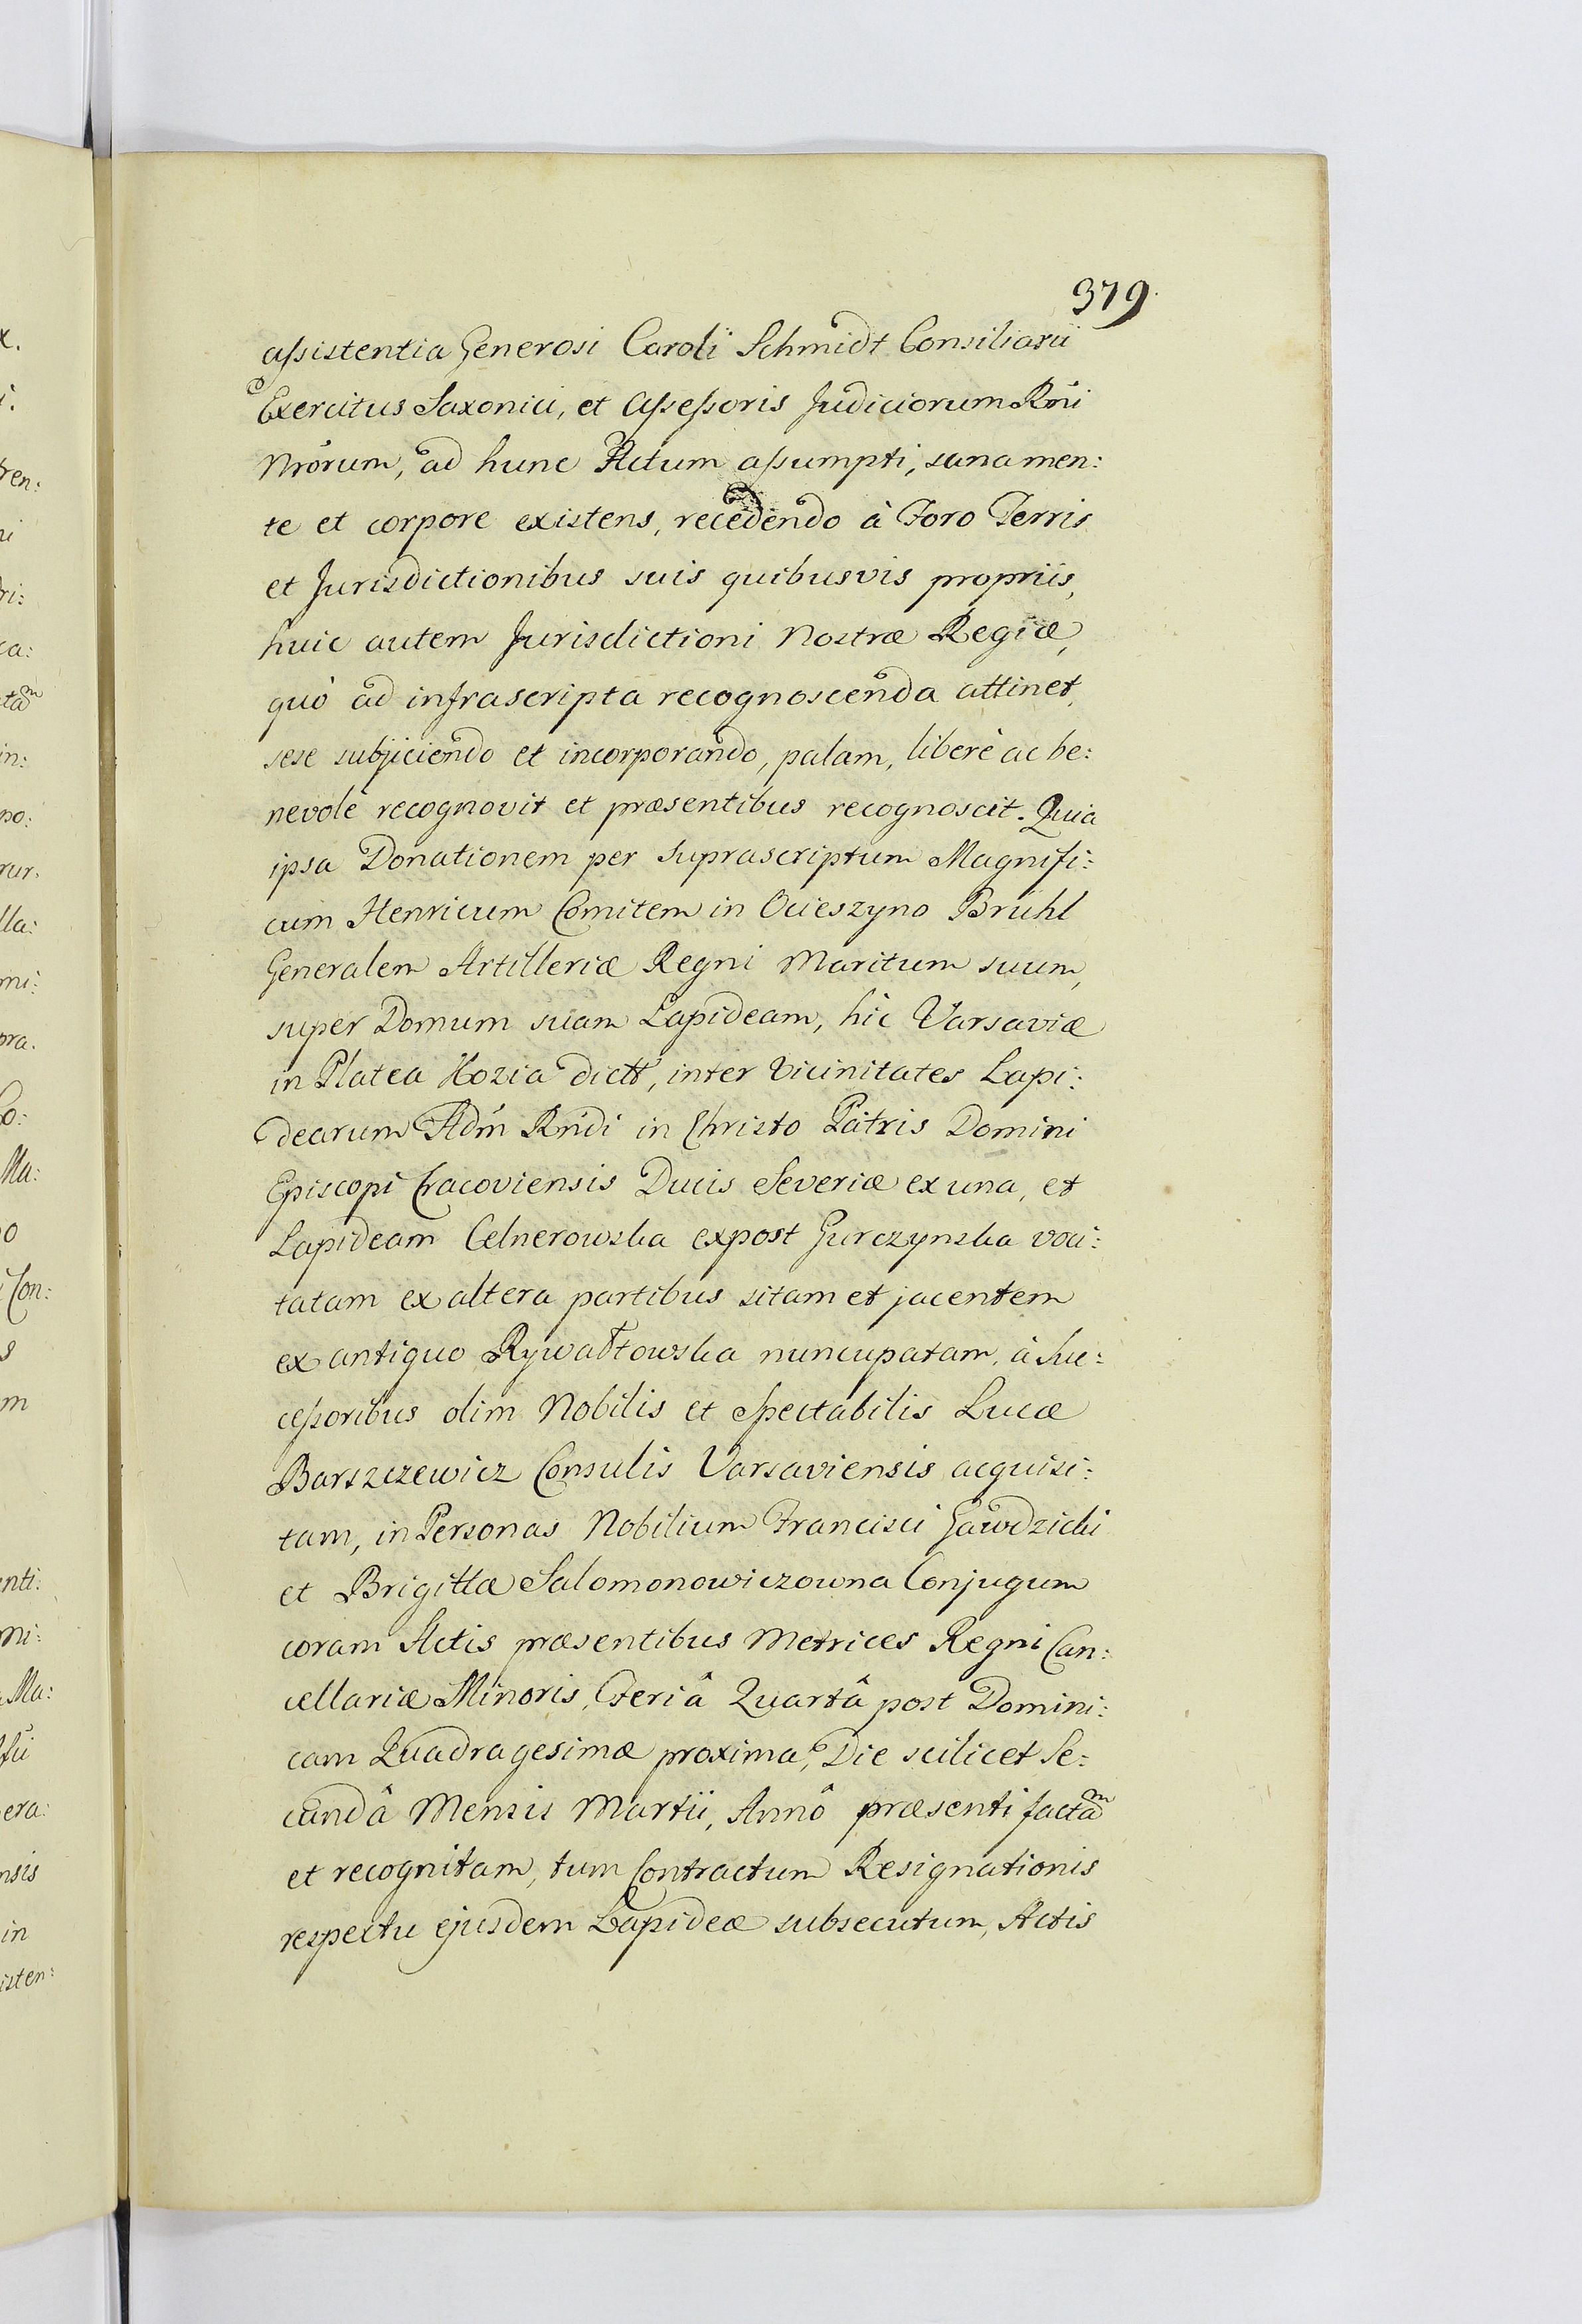 379.
assistentia Generosi Caroli Schmidt Consiliarii
Exercitus Saxonici, et Assessoris Judiciorum Rńi
Nrórum, ad hunc Actum assumpti, sana men:
te et corpore existens, recedendo à Foro Terris
et Jurisdictionibus suis quibusvis propriis,
huic autem Jurisdictioni Nostræ Regiæ,
quò ad infrascripta recognoscenda attinet,
sese subjiciendo et incorporando, palam, liberè ac be:
nevolè recognovit et præsentibus recognoscit. Quia
ipsa Donationem per suprascriptum Magnifi:
cum Henricum Comitem in Ocieszyno Brühl
Generalem Artilleriæ Regni Maritum suum,
super Domum suam Lapideam, hìc Varsaviæ
in Platea Kozia dictt, inter Vicinitates Lapi:
dearum Adm̃ Rńdi in Christo Patris Domini
Episcopi Cracoviensis Ducis Severiæ ex una, et
Lapideam Celnerowska expost Gurczynska voci:
tatam ex altera partibus sitam et jacentem
ex antiquo Rywałtowska nuncupatam, à Suc:
cessoribus olim Nobilis et Spectabilis Lucæ
Barszczewicz Consulis Varsaviensis acquisi:
tam, in Personas Nobilium Francisci Gawdzicki
et Brigittæ Salomonowiczowna Conjugum
coram Actis præsentibus Metrices Regni Can:
cellariæ Minoris, Feriâ Quartâ post Domini:
cam Quadragesimæ proxima, Die scilicet Se:
cundâ Mensis Martii, Annô præsenti factam
et recognitam, tum Contractum Resignationis
respectu ejusdem Lapideæ subsecutum, Actis